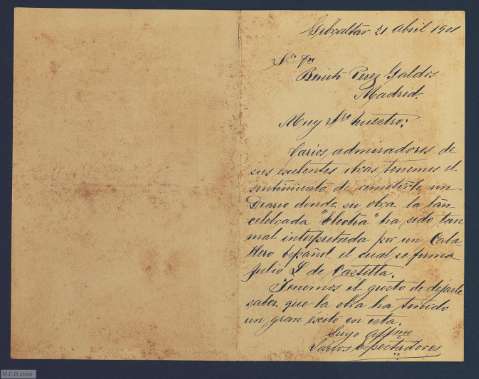 Gibraltar 21 Abril 1901
Sr Dn
Benito Perez Galdós
Madrid.
Muy Sr nuestro:
Varios admiradores de
sus exelentes obras tenemos el
sentimiento de remitirle un
Diario donde su obra la tan
celebrada "Electra" ha sido tan
mal interpretada por un Caba
llero Español el cual se firma
Julio L de Castilla.
Tenemos el gusto de dejarle
saber que la obra ha tenido
un gran exito en esta.
Suyo affmo
Varios espectadores